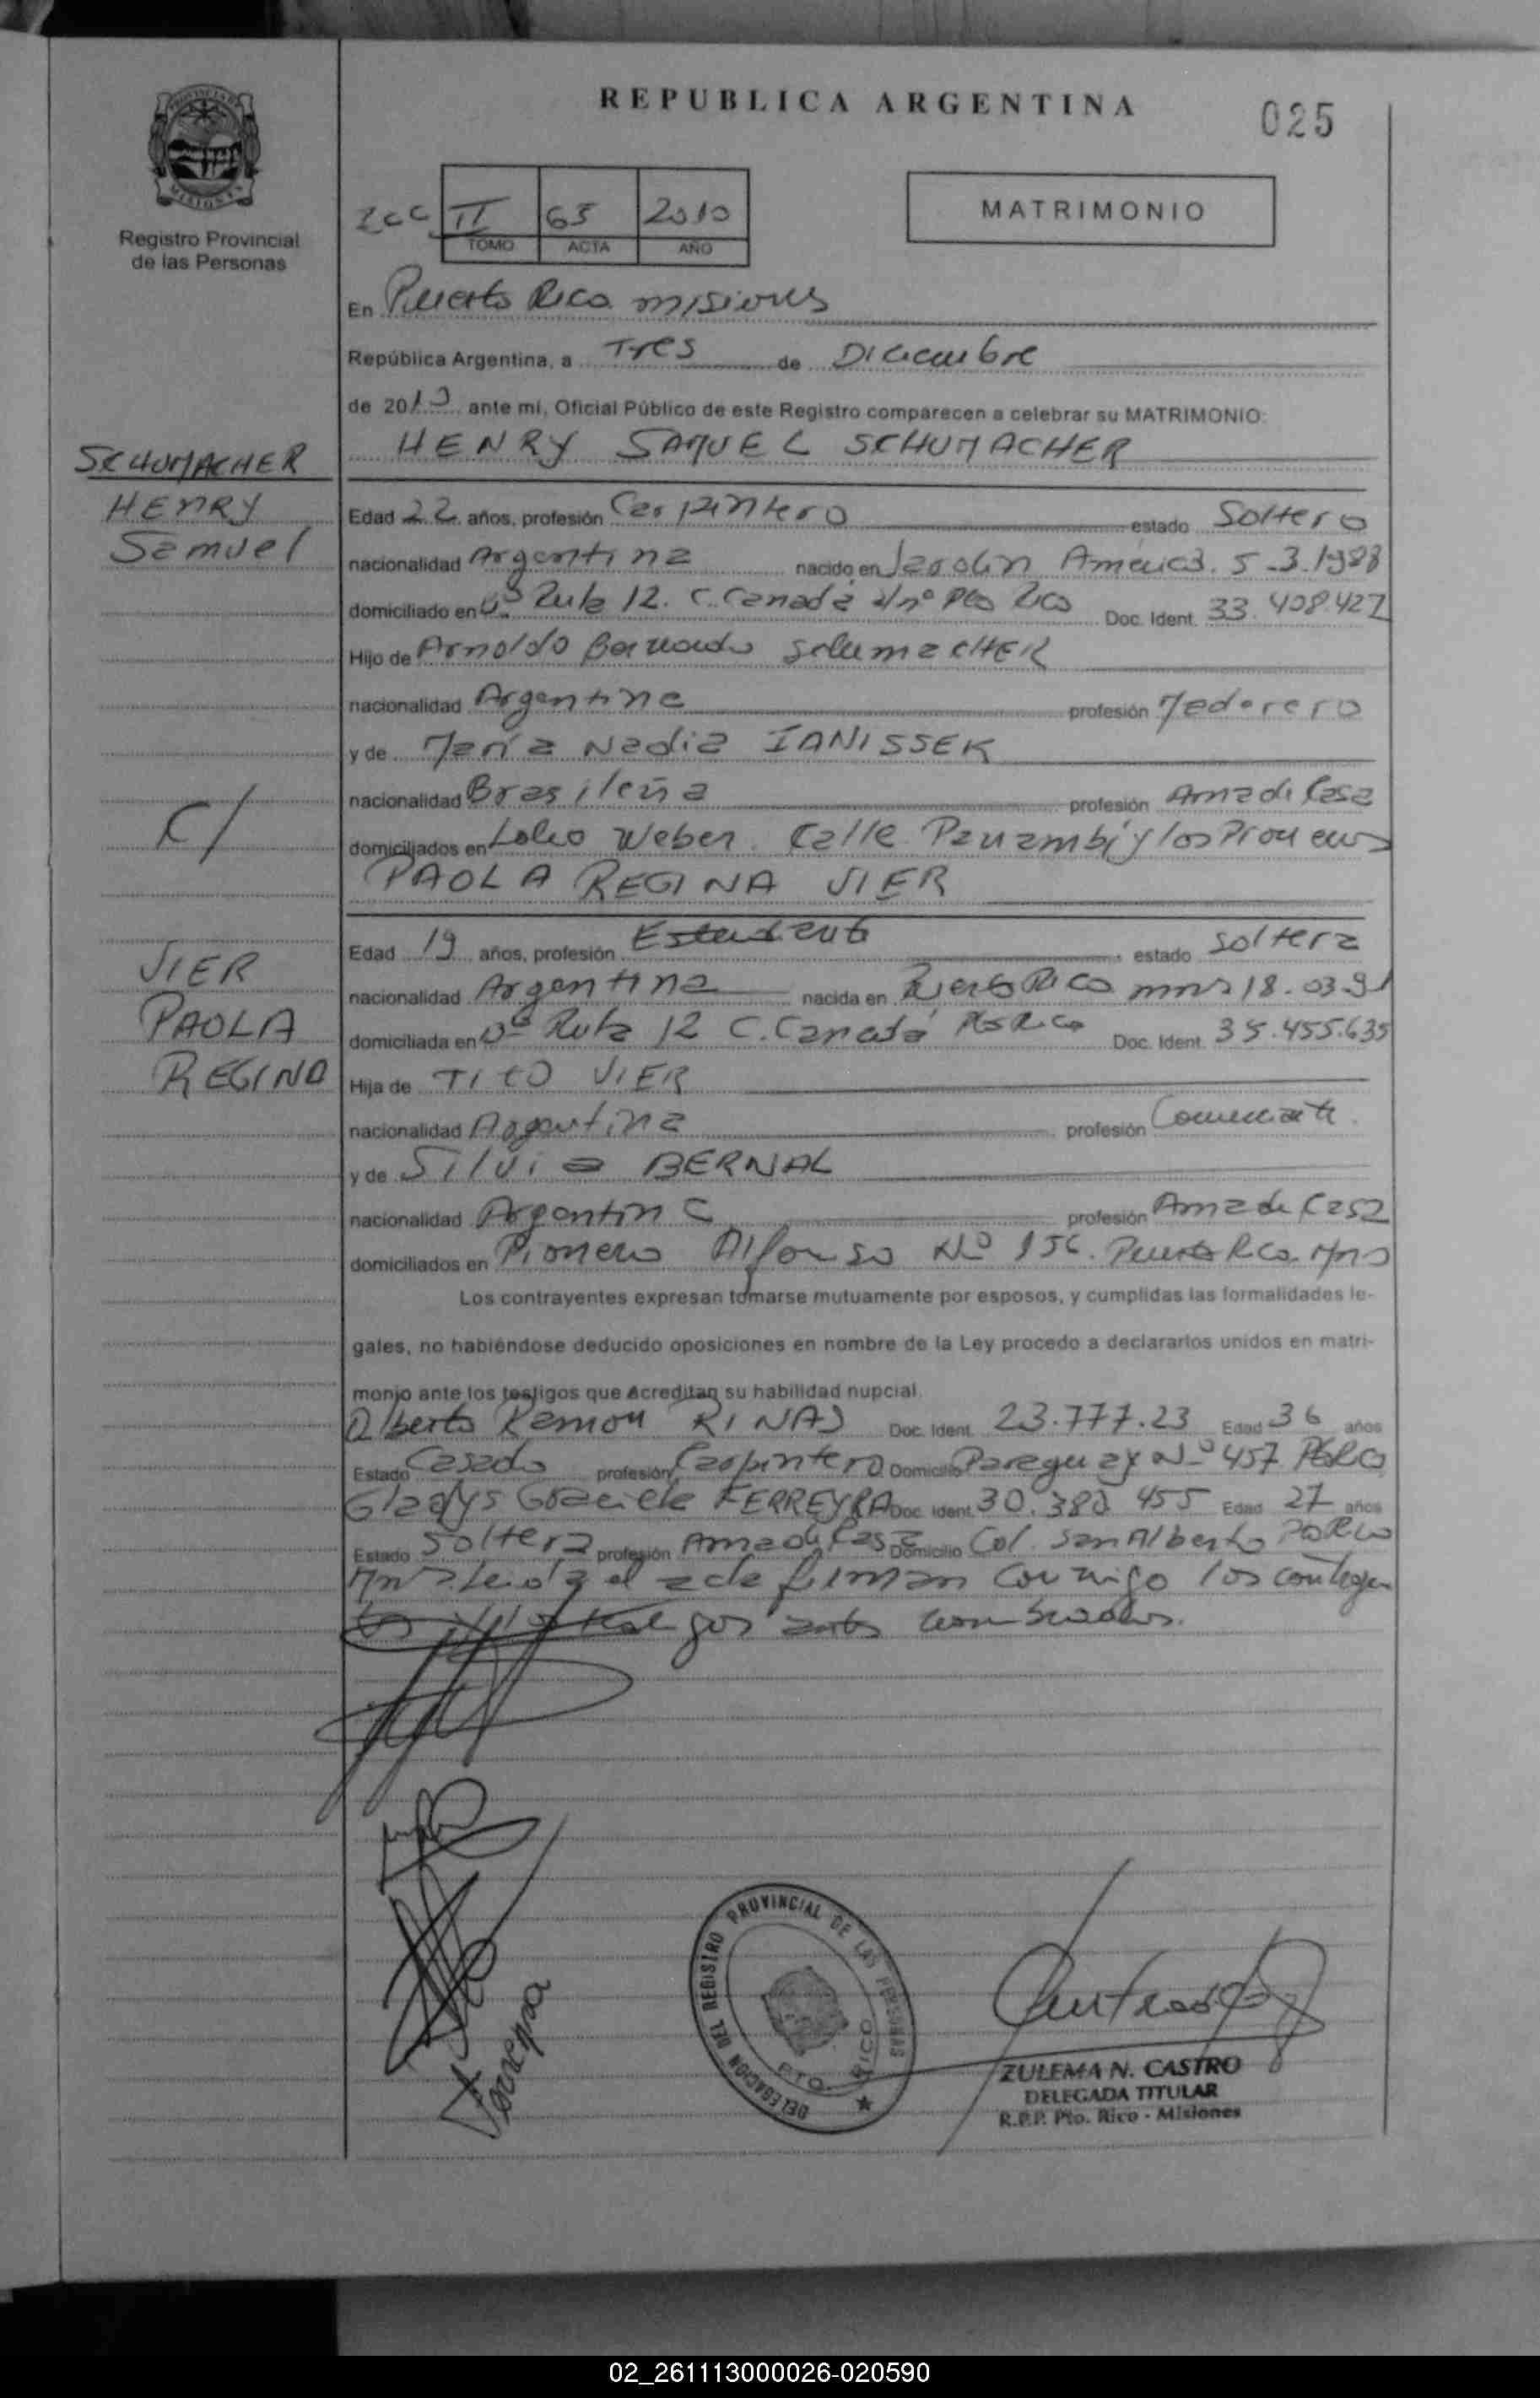 REPUBLICA ARGENTINA
025
PROVINCIA DE MISIONES
Registro Provincial
de las Personas
II 63 2010
TOMO ACTA AÑO
MATRIMONIO
En Puerto Rico misiones
República Argentina, a Tres de Diciembre
de 2010 ante mí, Oficial Público de este Registro comparecen a celebrar su MATRIMONIO:
HENRY SAMUEL SCHUMACHER
SCHUMACHER
HENRY
Samuel
Edad 22 años, profesión Carpintero estado Soltero
nacionalidad Argentina nacido en Jardin America. 5-3-1988
domiciliado en Ruta 12. C. Canadá s/nº Pto Rico Doc. Ident. 33.408.427
Hijo de Arnoldo Bernardo SchumacHER
nacionalidad Argentina profesión
y de María Nadia IANISSEK
nacionalidad Brasileña profesión Ama de Casa
C/
domiciliados en Weber. Calle Panambí y los
PAOLA REGINA VIER
VIER
PAOLA
REGINA
Edad 19 años, profesión Estudiante estado soltera
nacionalidad Argentina nacida en Puerto Rico mns 18.03.91
domiciliada en Ruta 12 C. Canadá Pto Rico Doc. Ident. 35.455.635
Hija de TITO VIER
nacionalidad Argentina profesión Comerciante
y de Silvia BERNAL
nacionalidad Argentina profesión Ama de Casa
domiciliados en Pionero Alfonso Nº 156. Puerto Rico. Mns
Los contrayentes expresan tomarse mutuamente por esposos, y cumplidas las formalidades le-
gales, no habiéndose deducido oposiciones en nombre de la Ley procedo a declararlos unidos en matri-
monio ante los testigos que acreditan su habilidad nupcial.
Alberto Ramon RINAS Doc. Ident. 23.777.23 Edad 36 años
Estado Casado profesión Carpintero Domicilio Paraguay Nº 457 PtoRico
Gladys Graciela FERREYRA Doc. Ident. 30.380 455 Edad 27 años
Estado Soltera profesión Ama de Casa Domicilio Col. San Alberto
Leída el acta firman conmigo los contrayen
tes y los testigos antes nombrados.
DELEGACION DEL REGISTRO PROVINCIAL DE LAS PERSONAS
PTO. RICO
ZULEMA N. CASTRO
DELEGADA TITULAR
R.P.P. Pto. Rico - Misiones
02_261113000026-020590